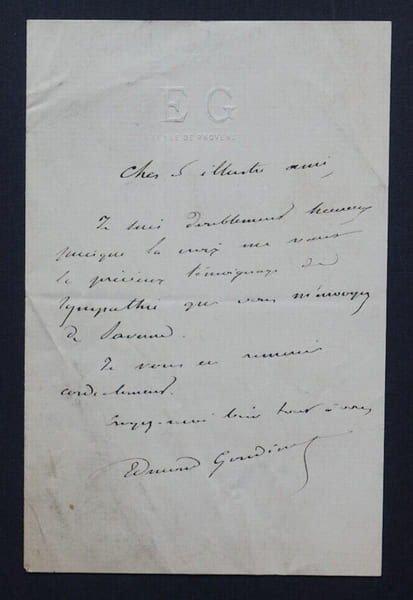 EG
RUE DE PROVENCE
Cher & illustre ami,
Je suis doublement heureux
puisque la croix me vaut
le précieux témoignage de
sympathie que vous m'envoyez
de
Je vous en remercie
cordialement.
Croyez-moi bien tout à vous
Edmond Gondinet